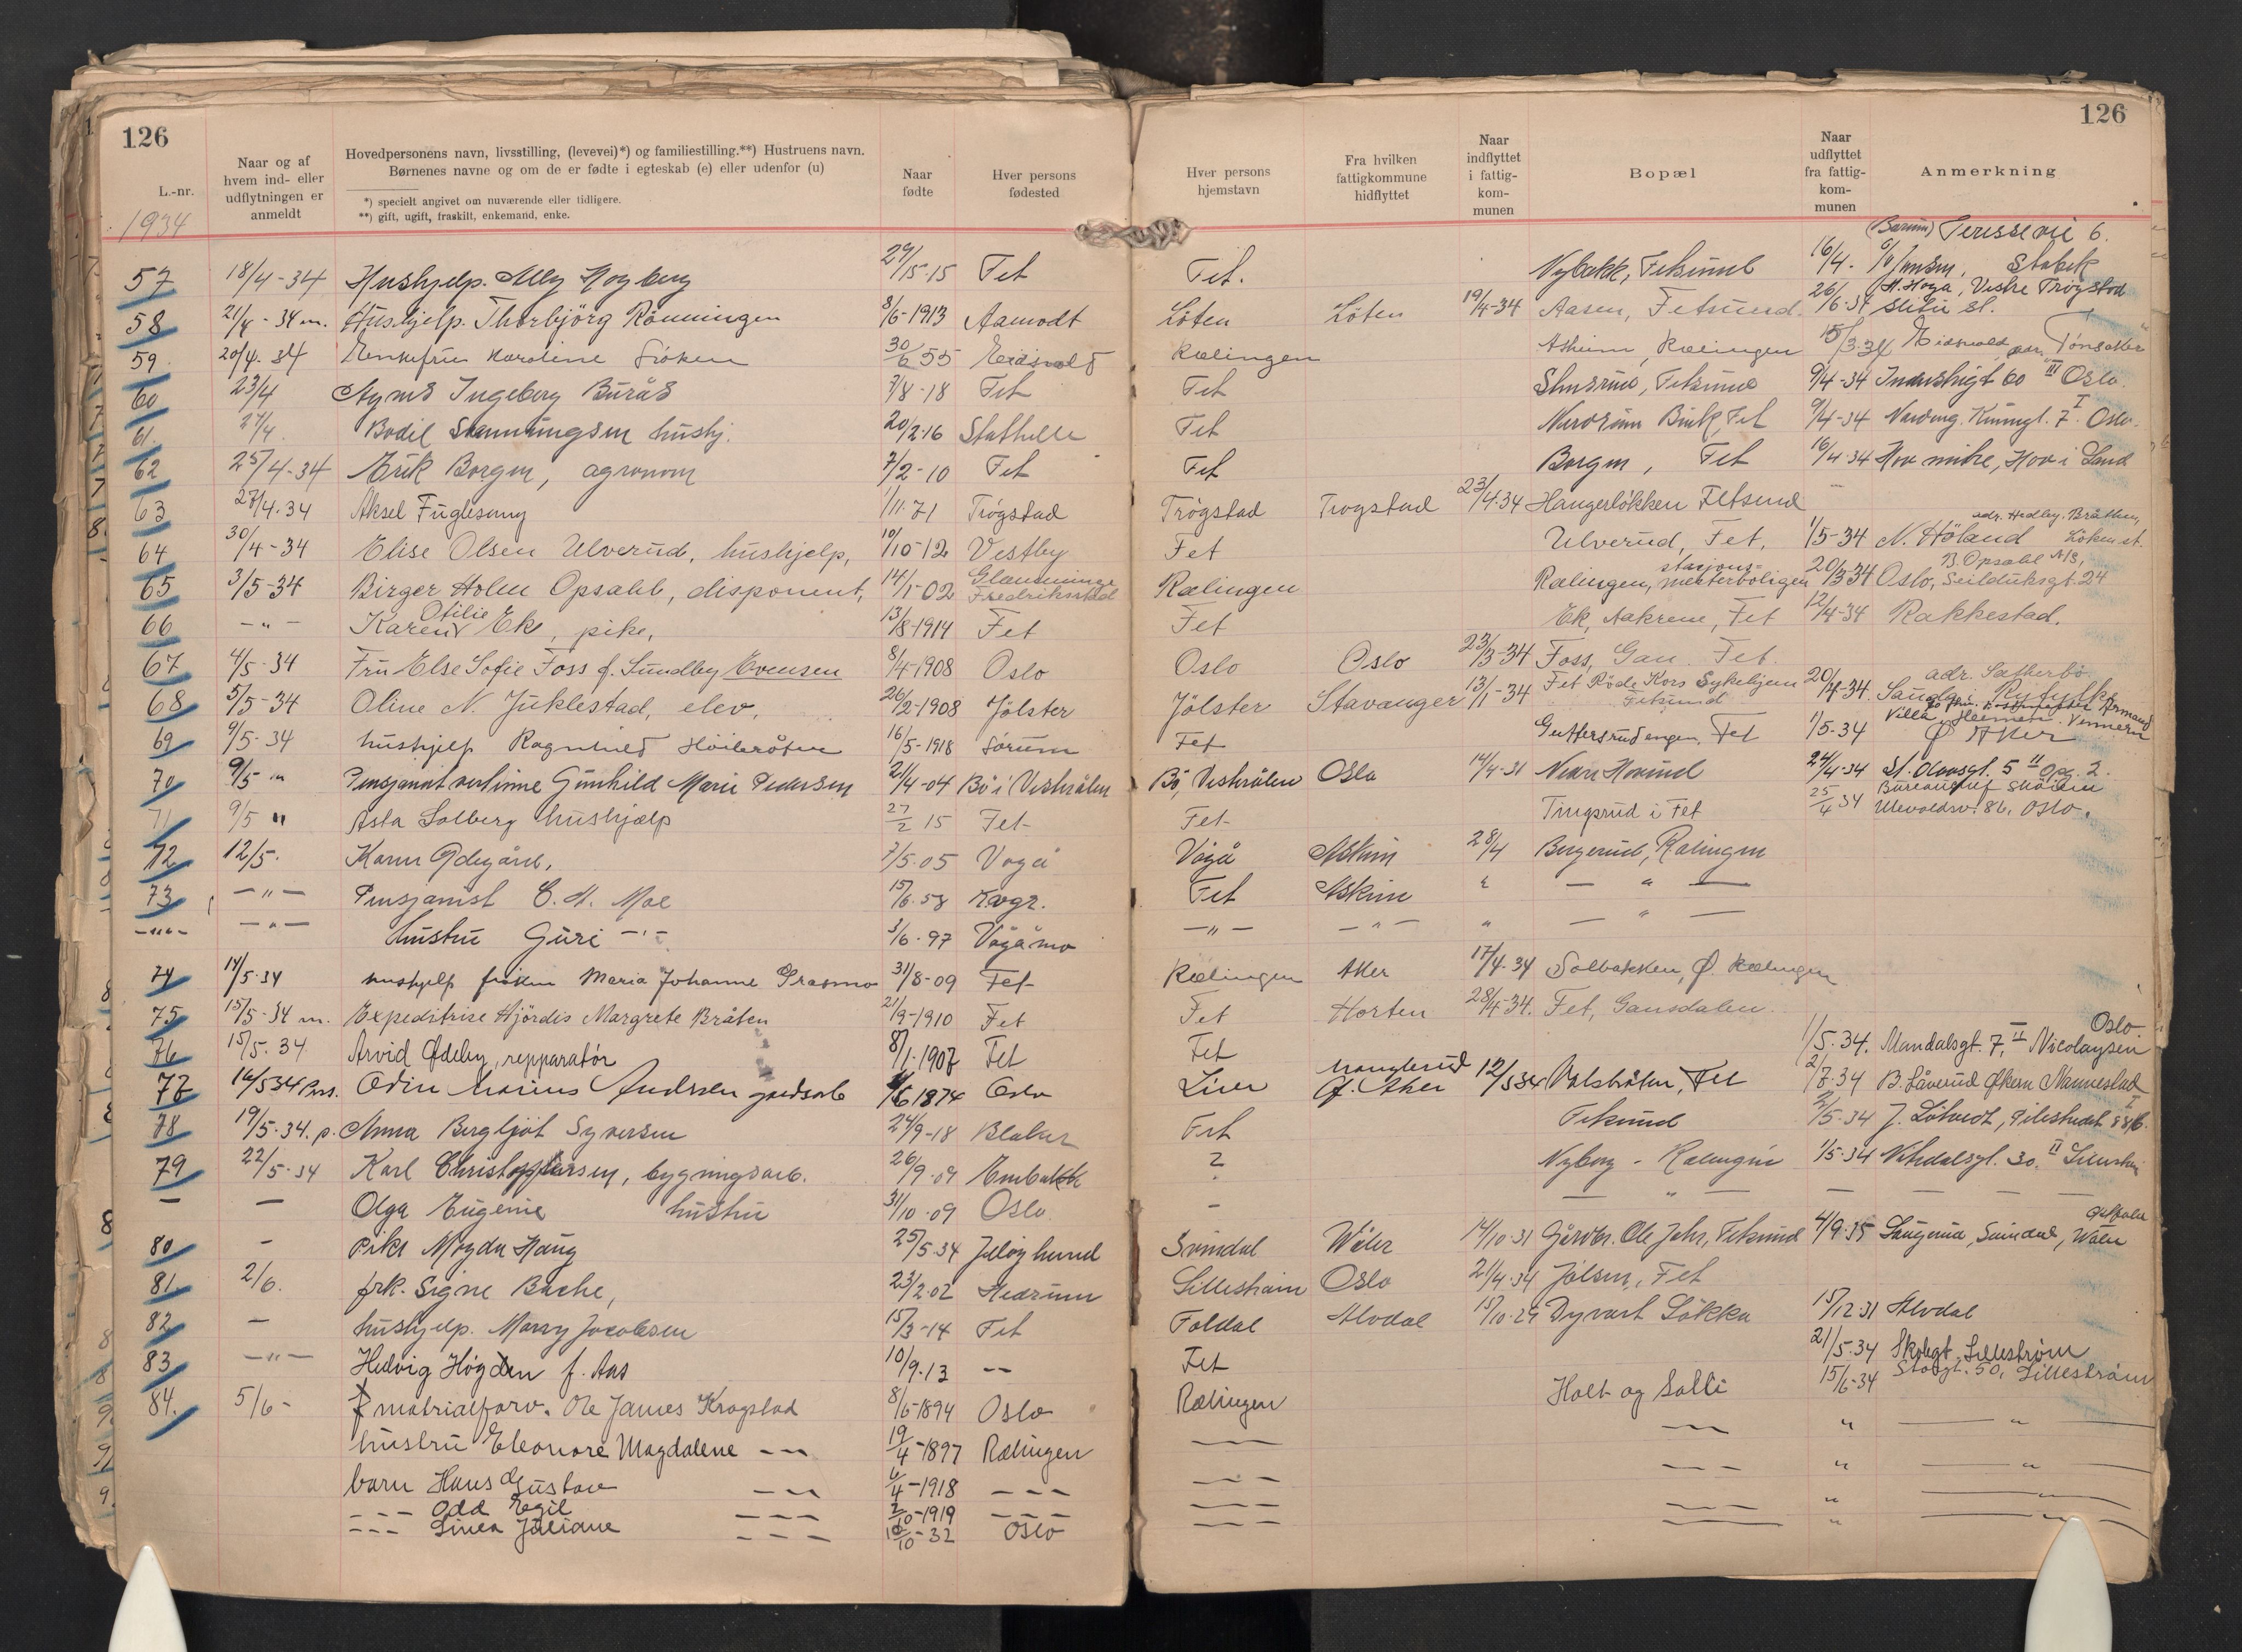 126
126
L.-nr.
Naar og af hvem ind- eller udflytningen er anmeldt
Hovedpersonens navn, livsstilling, (levevei)*) og familiestilling.**) Hustruens navn.
Børnenes navne og om de er fødte i egteskab (e) eller udenfor (u)
*) specielt angivet om nuværende eller tidligere.
**) gift, ugift, fraskilt, enkemand, enke.
Naar fødte
Hver persons fødested
Hver persons hjemstavn
Fra hvilken fattigkommune hidflyttet
Naar indflyttet i fattig-kom-munen
Bopæl
Naar udflyttet fra fattig-kom-munen
Anmerkning
1934
(Bærum) 6.
57 18/4-34 Hushjelp. Høyberg 15 Fet Fet. Nybakk, Fetsund 16/4. Stabek
58 21/4-34 m. Hushjelp. Thorbjörg Rönningen 8/6-1913 Aamodt Löten Löten 19/4-34 Aasen, Fetsund. 26/6-34 H. Haga, Vestre Trögstad st.
59 20/4. 34 Enkefru Karoline 30/6 55 Eidsvold Rælingen Asheim, Rælingen 15/3-34 Eidsvold, adr.
60 23/4 Agnes Ingeborg Burås 7/8-18 Fet Fet Fetsund 9/4-34 Industrigt 60 III Oslo.
61. 24/4. Bodil hushj. 20/2-16 Stathelle Fet Nerdrum Bruk Fet 9/4-34 7. I Oslo.
62 25/4-34 Erik Borgen, agronom 7/2-10 Fet Fet Borgen, Fet 16/4-34 Hov i Land
63 27/4.34 Aksel Fuglesang 1/11.71 Trögstad Trögstad Trogstad 23/4.34 Hangerlökken Fetsund
adr. Hedley. Bråthen,
64 30/4-34 Elise Olsen Ulverud, hushjelp, 10/10-12 Vestby Fet Ulverud, Fet, 1/5-34 N. Höland Löken st.
65 3/5-34 Birger Holm Opsahl, disponent, 14/1-02 Glemminge Fredrikstad Rælingen Rælingen, stasjons=mesterboligen 20/3-34 B. Opsahl A/S, Oslo, Seilduksgt. 24
66 -"- Karen Otilie Ek, pike, 13/8-1914 Fet Fet Ek, Aakrene, Fet 12/4-34 Rakkestad.
67 4/5-34 Fru Else Sofie Foss f. Sundby Evensen 8/4-1908 Oslo Oslo Oslo 23/3-34 Foss, Gan. Fet.
68 5/5-34 Oline N. Juklestad, elev, 26/2-1908 Jölster Jölster Stavanger 13/1-34 Fet Röde Kors Sykehjem Fetsund 20/4-34. adr. Sætherbö
69 9/5-34 hushjelp Ragnhild 16/5-1918 Sørum Fet Guttersrudengen, Fet 1/5-34 Villa Ø Aker
70 9/5 " Gunhild Marie Pedersen 21/4-04 Bö i Vesterålen Bö, Vesterålen Oslo 14/4-31 Hovind 24/4-34 St. Olavsgt. 5 II Opg. 2.
71 9/5 " Asta Solberg hushjælp 27/2 15 Fet Fet Tingsrud i Fet 25/4 34 Ulevoldsv. 86. Oslo.
72 12/5. Karen Ødegård, 7/5.05 Vågå Vågå Askim 28/4 Bergerud, Rælingen
73 -"- Pensjonist C. A. Moe 15/6.58 Fet Askim " - " -
-"- -"- hustru Guri -"- 3/6-97 Vågåmo -"- -"- " - " -
74 14/5-34 hushjelp frøken Maria Johanne Grasmo 31/8-09 Fet Rælingen Aker 17/4.34 Solbakken, Ø. Rælingen
75 15/5-34 m. Expeditrise Hjördis Margrete Bråten 21/9-1910 Fet Fet Horten 28/4-34. Fet, Gansdalen.
76 15/5. 34 Arvid Ødeby, repparatør 8/1.1907 Fet Fet 1/5.34. Mandalsgt. 7, II Nicolaysen Oslo
77 16/5 34 Pers. Odin Marius Andersen gårdsarb 1874 Oslo Lier Aker 12/5 34 Fet 2/7.34 B. Låverud Økern Nannestad
78 19/5-34. p. Anna Bergljot Syversen 24/9-18 Blaker Fet Fetsund 2/5-34 J.
79 22/5-34 Karl Christophersen, bygningsarb. 26/9.09 Enebakk ? Nyborg - Rælingen 1/5-34 30. II
- - Olga Eugenie hustru 31/10.09 Oslo. - - " - - - - -
80 - Pike Magda Haug 25/5.34 Svindal Våler 14/10-31 Gårdbr. Ole Jahr, Fetsund 4/9-35 Svindal, Våler
81 2/6. frk. Signe Bache, 23/2.02 Hedrum Lillesham Oslo 21/4-34 Jølsen, Fet
82 - hushjelp. Marry Jacobsen 15/3-14 Fet Foldal Alvdal 15/10-29 Løkka 15/12 31 Alvdal
83 -"- Hedvig Høgden f. Aas 10/9.13 -- Fet 21/5-34 Skolegt. Lillestrøm
84. 5/6- matrialforv. Ole James Krogstad 8/6-1894 Oslo Rælingen Holt og Salli 15/6-34 Storgt. 50, Lillestrøm
hustru Eleonore Magdalene - - 19/4-1897 Rælingen
barn Hans Gustav - - 6/4-1918 - - -
- - - Odd Egil - - - 2/10-1919 - - -
- - - Linea Juliane - - - 10/10-32 Oslo